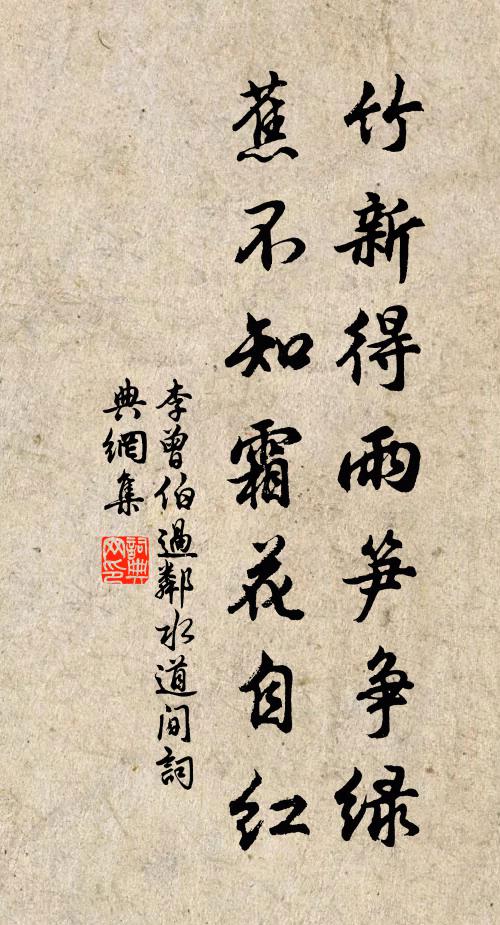 竹新得雨笋争绿
蕉不知霜花自红
李曾伯過鄰水道间詞
典網集
詞典
网印